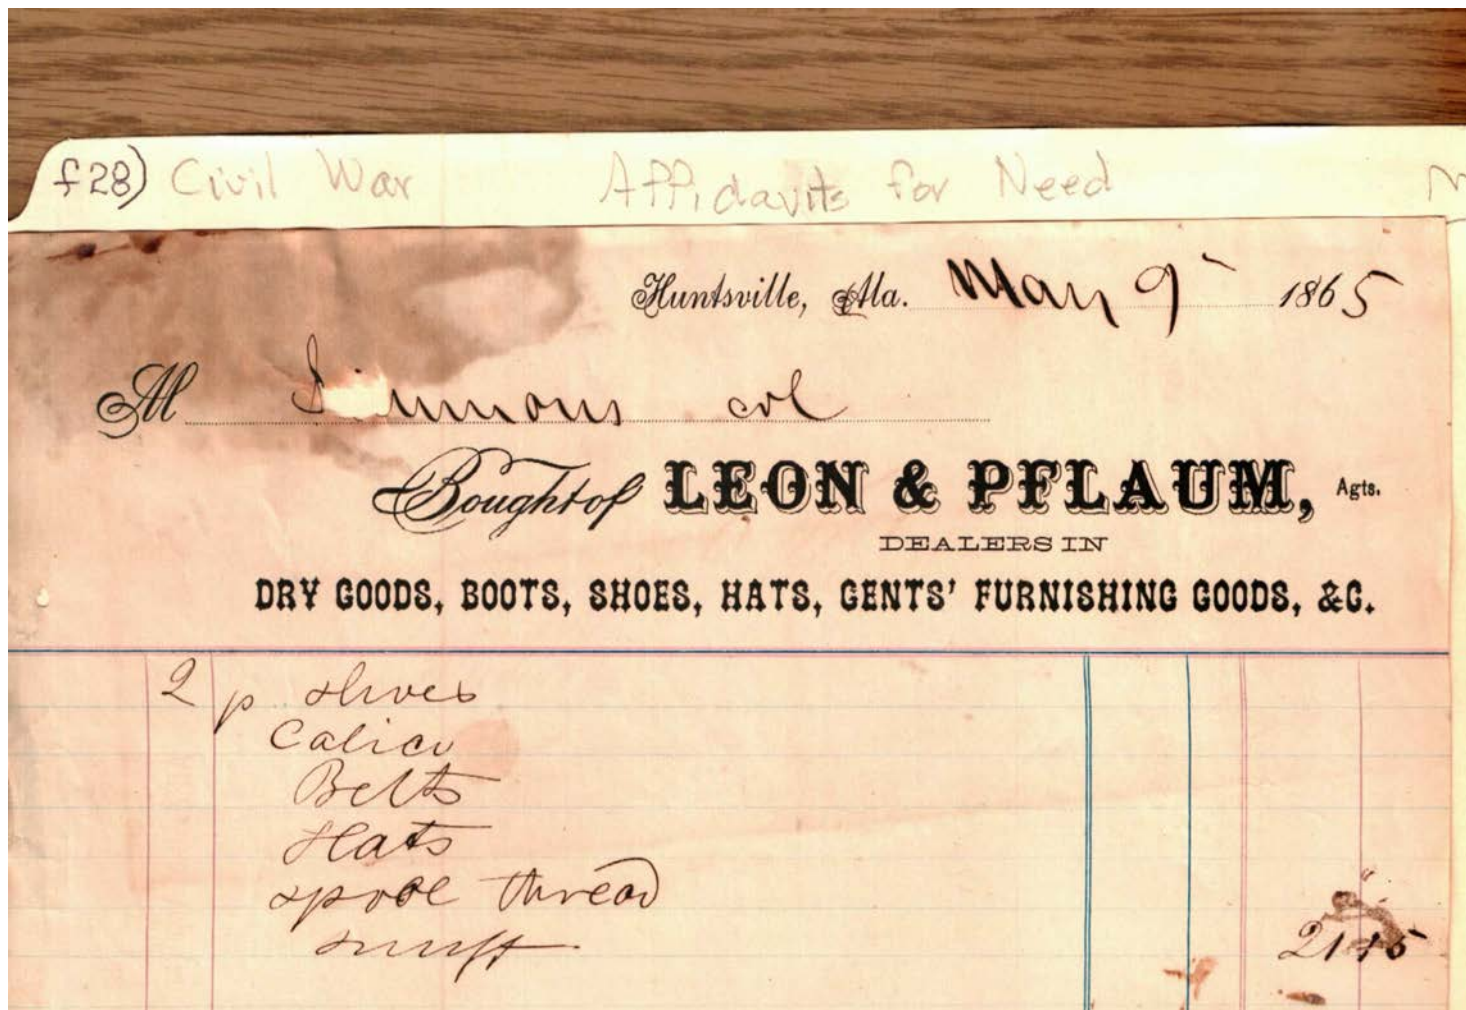 f28) Civil War Affidavits for Need
Huntsville, Ala. May 9 1865
M col
Bought of LEON & PFLAUM, Agts.
DEALERS IN
DRY GOODS, BOOTS, SHOES, HATS, GENTS' FURNISHING GOODS, &C.
2 p shoes
Calico
Belts
Hats
spool thread
snuff